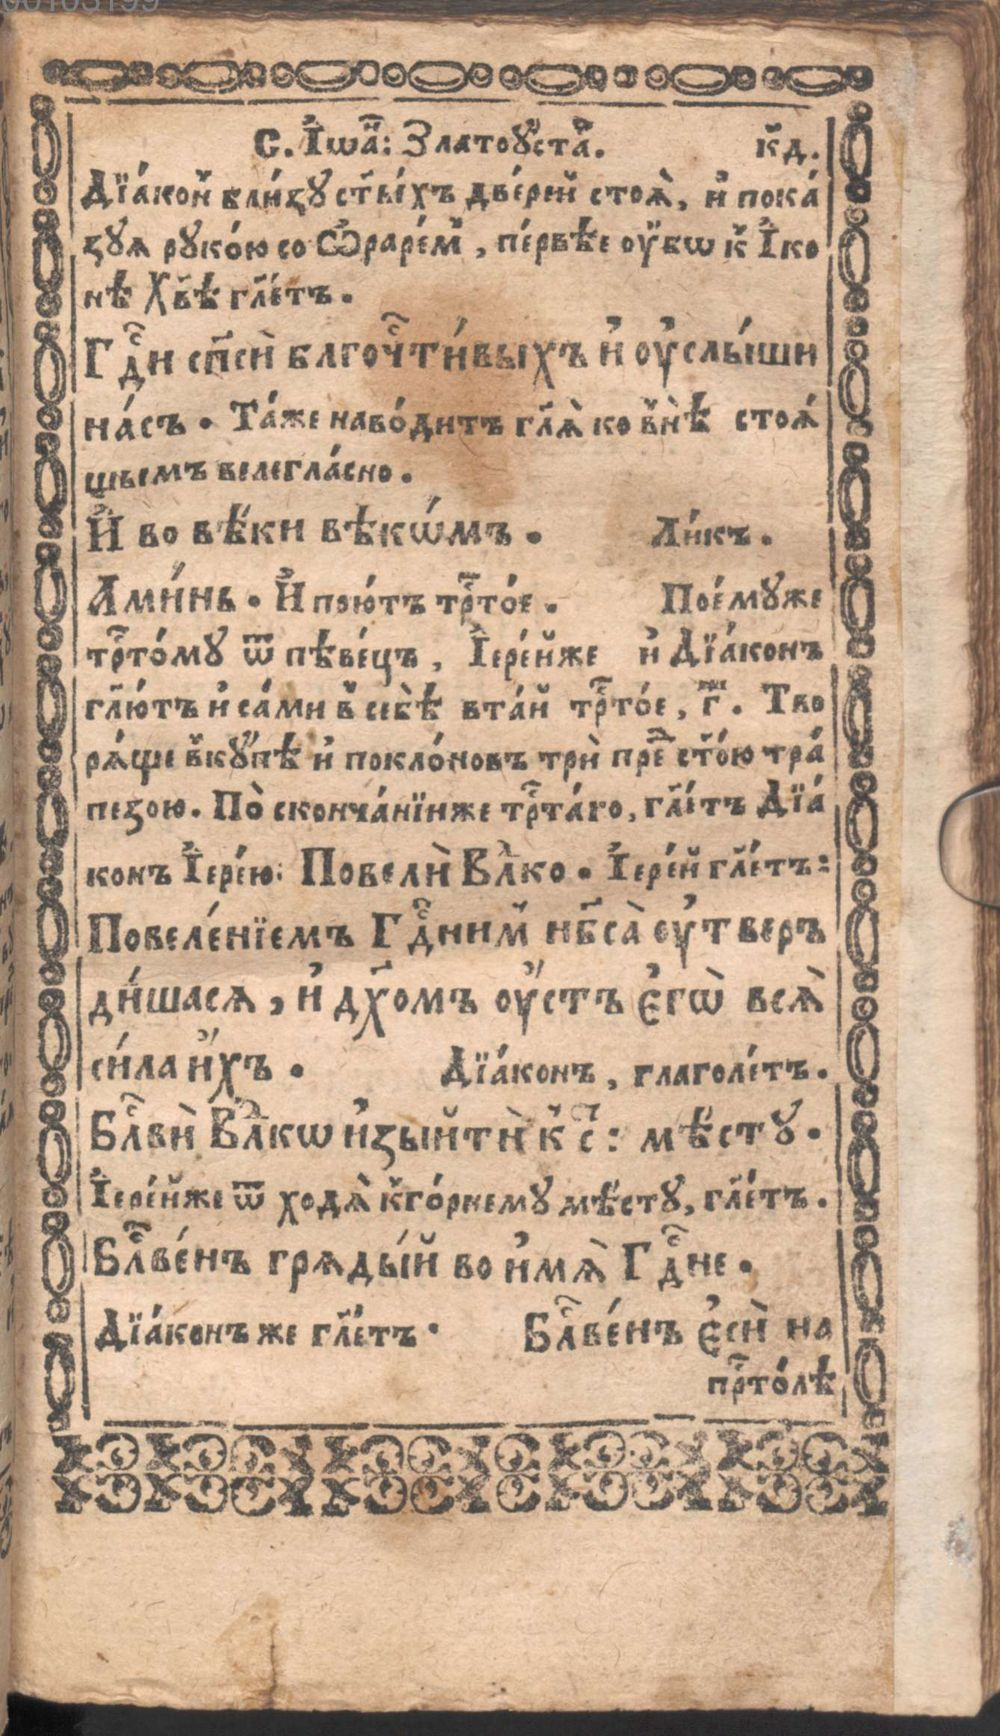 00103199
С. І҆ѡа҃н: Златоꙋ́ста. к҃д.
Дїа́кон бли́зꙋ ст҃ы́хъ две́рей стоѧ̀, и҆ пока́
зꙋѧ рꙋко́ю со Ѡ҆раре́м, пе́рвѣе оу҆́бѡ к І҆ко
нѣ Хв҃ѣ гл҃етъ.
Гдⷭ҇и сп҃сѝ блгочⷭ҇ти́выхъ и҆ оу҆слы́ши
на́съ. Та́же наво́дитъ гл҃ѧ̀ ко внѣ̀ стоѧ́
щьемъ велегла́сно.
И҆ во вѣ́ки вѣкѡ́мъ. Ли́къ.
Ами́нь. И҆ пою́тъ трⷭ҇то́е. Пое́мꙋже
трⷭ҇то́мꙋ ѿ пѣве́цъ, І҆ере́йже и҆ Дїа́конъ
гл҃ютъ и҆ са́ми в себѣ̀ вта́й трⷭ҇то́е, г҃. Тво
рѧ́ще вкꙋ́пѣ и҆ покло́новъ трѝ преⷣ ст҃о́ю тра́
пезою. По̀ сконча́нїиже трⷭ҇та́го, гл҃етъ Дїа́
конъ І҆ере́ю: Повелѝ Вл҃ко. І҆ере́й гл҃етъ:
Повеле́нїемъ Гдⷭ҇ним нб҃са̀ оу҆твер
ди́шасѧ, и҆ дх҃омъ оу҆́стъ є҆гѡ̀ всѧ̀
си́ла и҆́хъ. Дїа́конъ, глаго́летъ.
Блⷭ҇вѝ Влⷣкѡ и҆зыйтѝ к с҃: мѣ́стꙋ.
І҆ере́йже ѿ ходѧ̀ кго́рнемꙋ мѣ́стꙋ, гл҃етъ.
Блⷭ҇ве́нъ грѧды́й во и҆мѧ̀ Гдⷭ҇не.
Дїа́конъ же гл҃етъ. Блⷭ҇ве́нъ є҆сѝ на
прⷭ҇то́лѣ